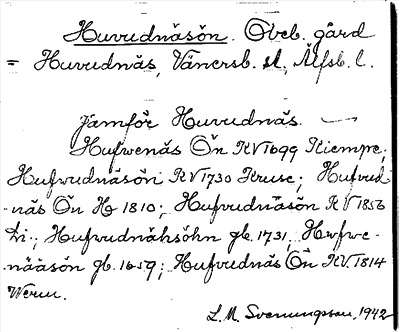 Huvudnäsön. Obeb. gård
= Huvudnäs, Vänersb. sl., Älfsb. l.
Jämför Huvudnäs.
Hufwenäs Ön RV 1699 Kiempe;
Hufwudnäsön RV 1730 Kruse; Hufvud-
näs Ön Hg 1810; Hufvudnäsön RV 1856
Li.; Hufwudnähsöhn gb. 1731; Hwfwe-
nääsön gb. 1659; Hufvudnäs Ön RV. 1814
Werm.
L. M. Svenungsson, 1942